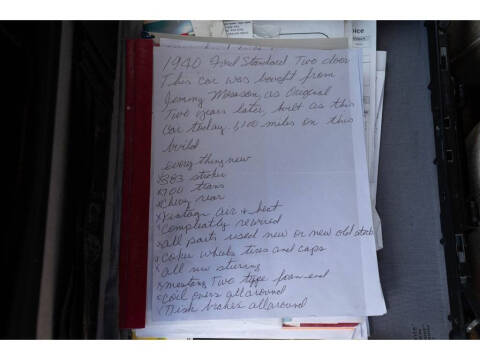 1940 Ford Standard Two door
This car was bought from
Jimmy as Original
Two years later, built as this
car today. 1,100 miles on this
build
every thing new
x383 stroker
x700 trans
xChevy rear
xVintage air & heat
xCompleatly rewired
xall parts used new or new old stock
xCoker wheels tires and caps
xall new sturing
xmustang Two type front end
xCoil overs allaround
xDisk brakes allaround